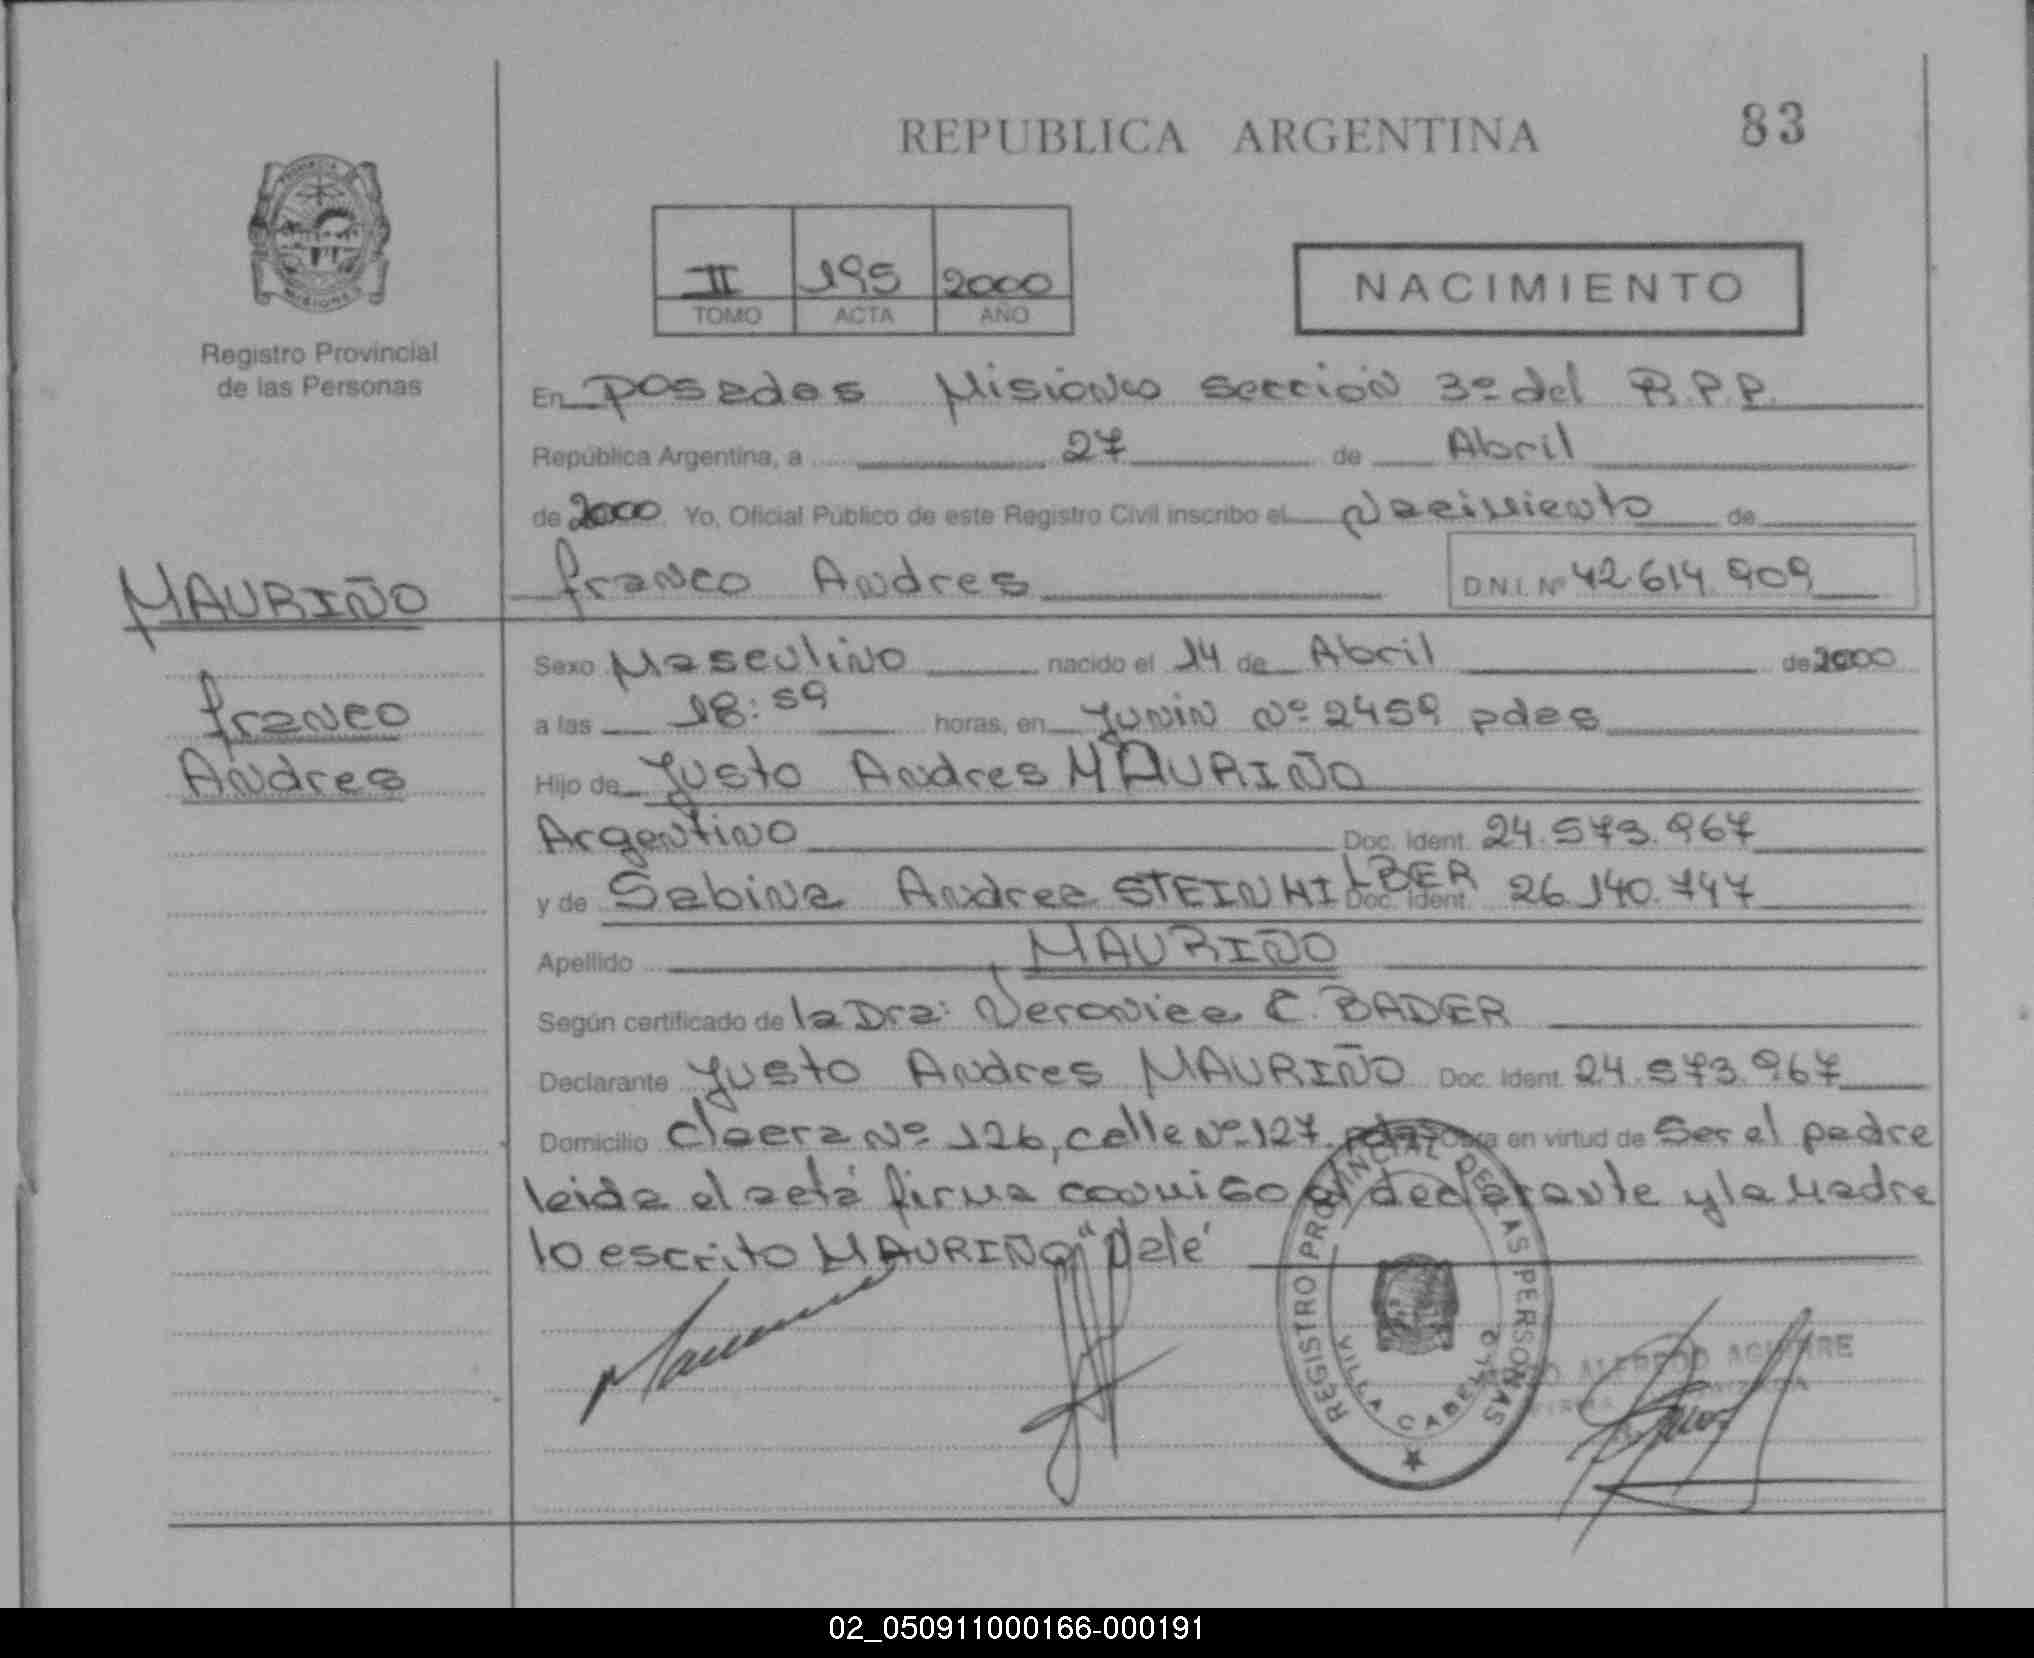 REPUBLICA ARGENTINA
83
II 195 2000
TOMO ACTA AÑO
NACIMIENTO
Registro Provincial
de las Personas
En Posadas Misiones sección 3º del R.P.P.
República Argentina, a 27 de Abril
de 2000 Yo, Oficial Público de este Registro Civil inscribo el Nacimiento de
MAURIÑO
Franco
Andres
Franco Andres D.N.I. Nº 42.614.909
Sexo Masculino nacido el 14 de Abril de 2000
a las 18:59 horas, en Junin Nº 2459 pdas
Hijo de Justo Andres MAURIÑO
Argentino Doc. Ident. 24.573.967
y de Sabina Andrea STEINHILBER Doc. Ident. 26.140.747
Apellido MAURIÑO
Según certificado de la Dra: Veronica C. BADER
Declarante Justo Andres MAURIÑO Doc. Ident. 24.573.967
Domicilio Nº 126, calle Nº 127 pdas Obra en virtud de Ser el padre
leida el acta firma conmigo el declarante y la Madre
lo escrito MAURIÑO "Vale"
REGISTRO PROVINCIAL DE LAS PERSONAS
VILLA CABELLO
ALFREDO AGUIRRE
02_050911000166-000191